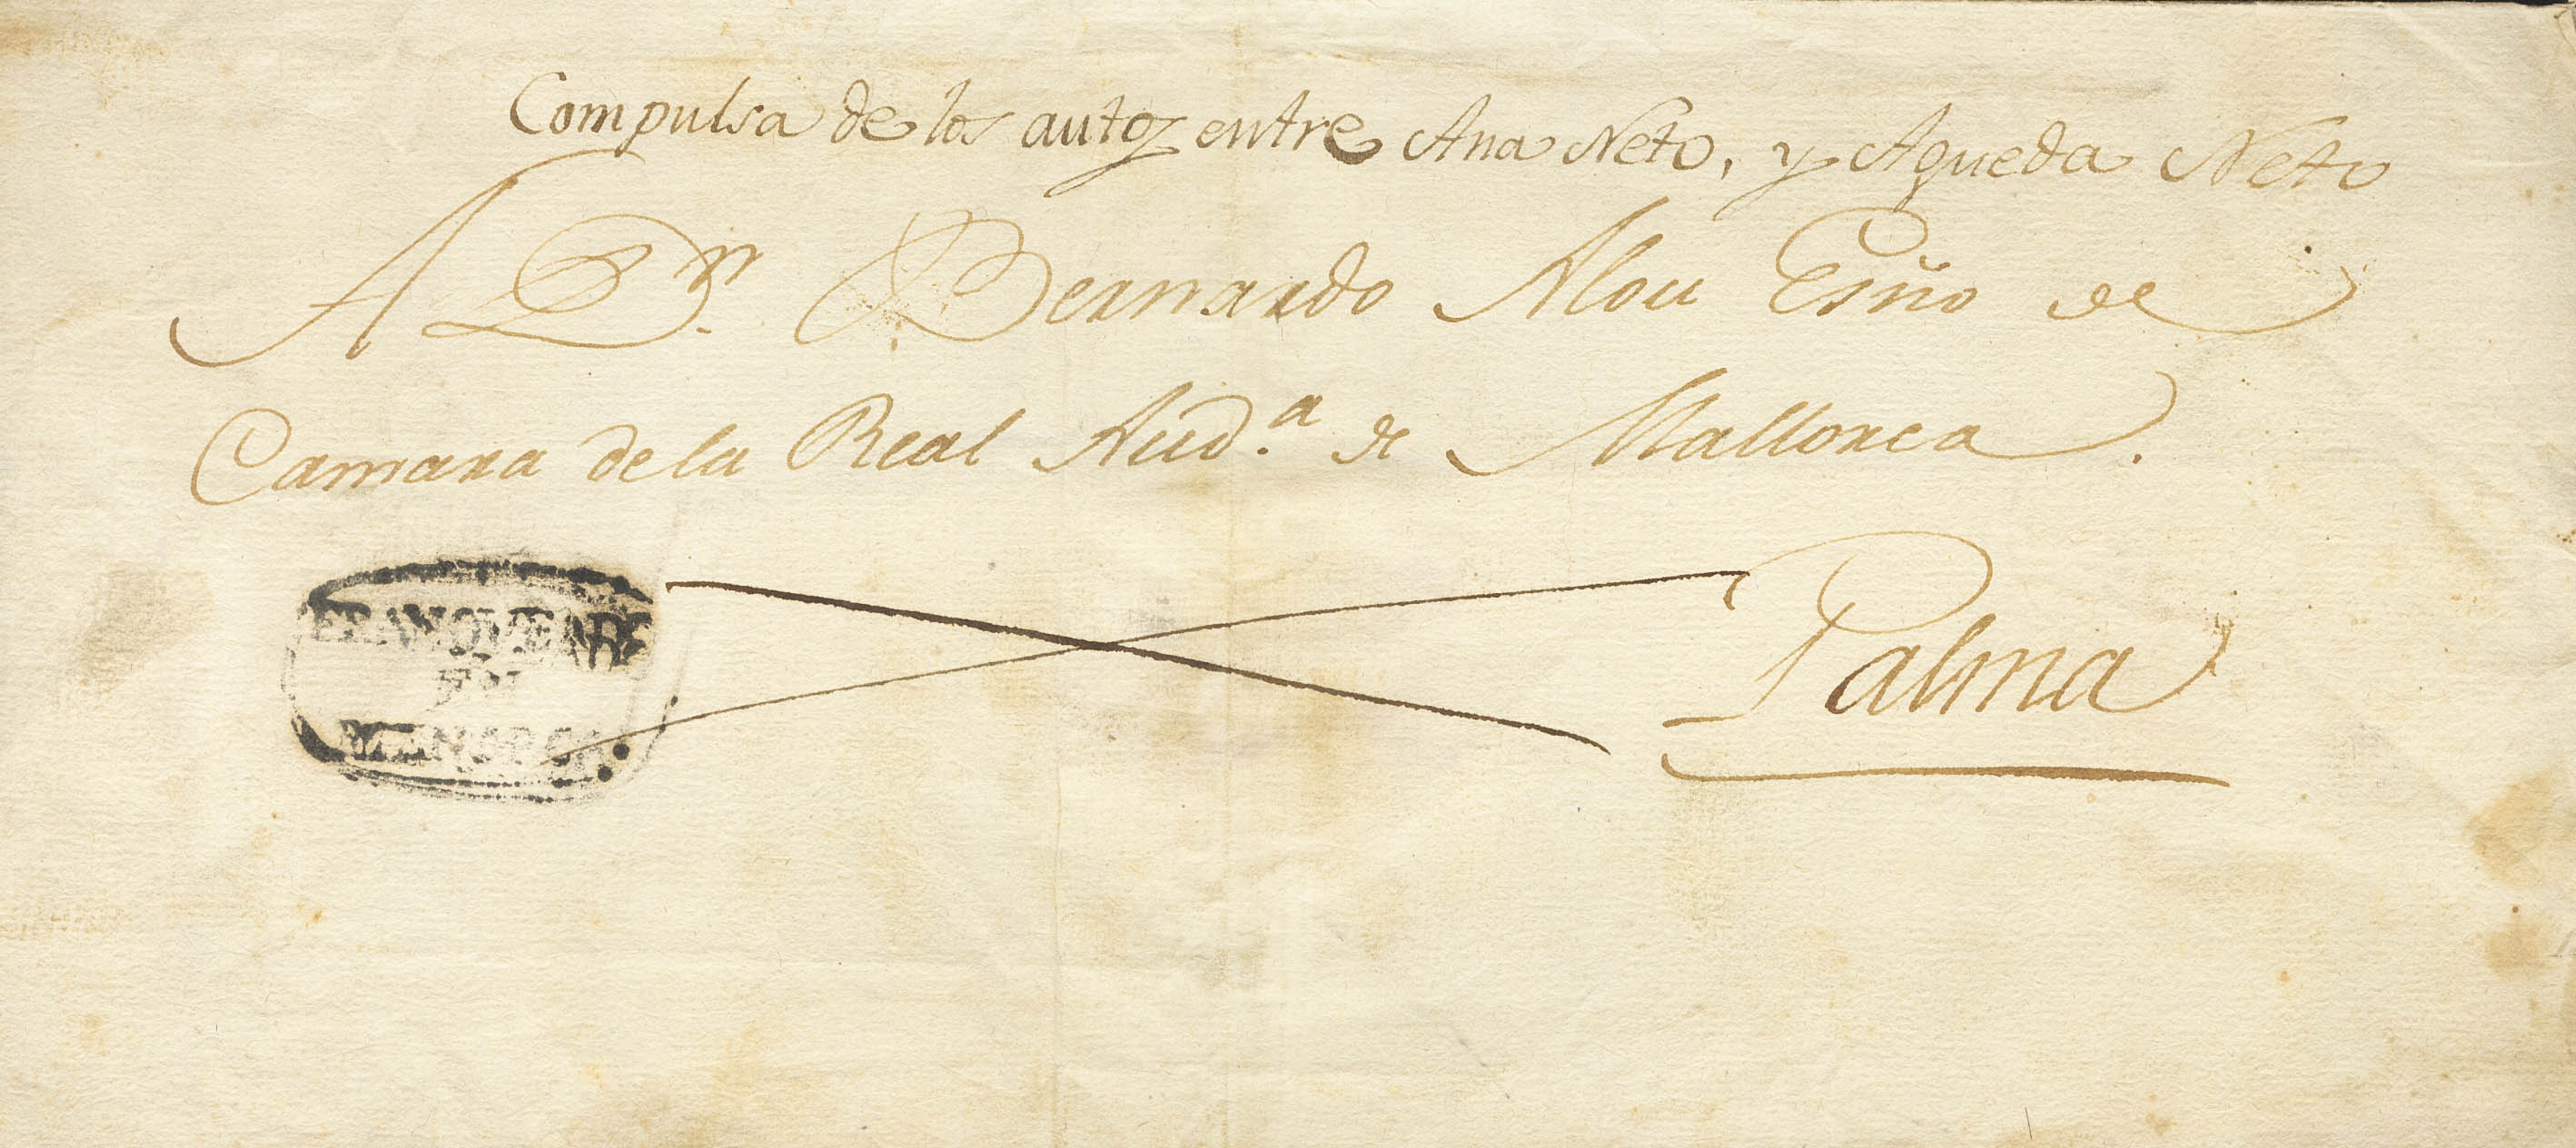 Compulsa de los autos entre Ana Neto, y Agueda Neto
A Dn. Bernardo Alou Esño de
Camara de la Real Aud.a de Mallorca.
Palma